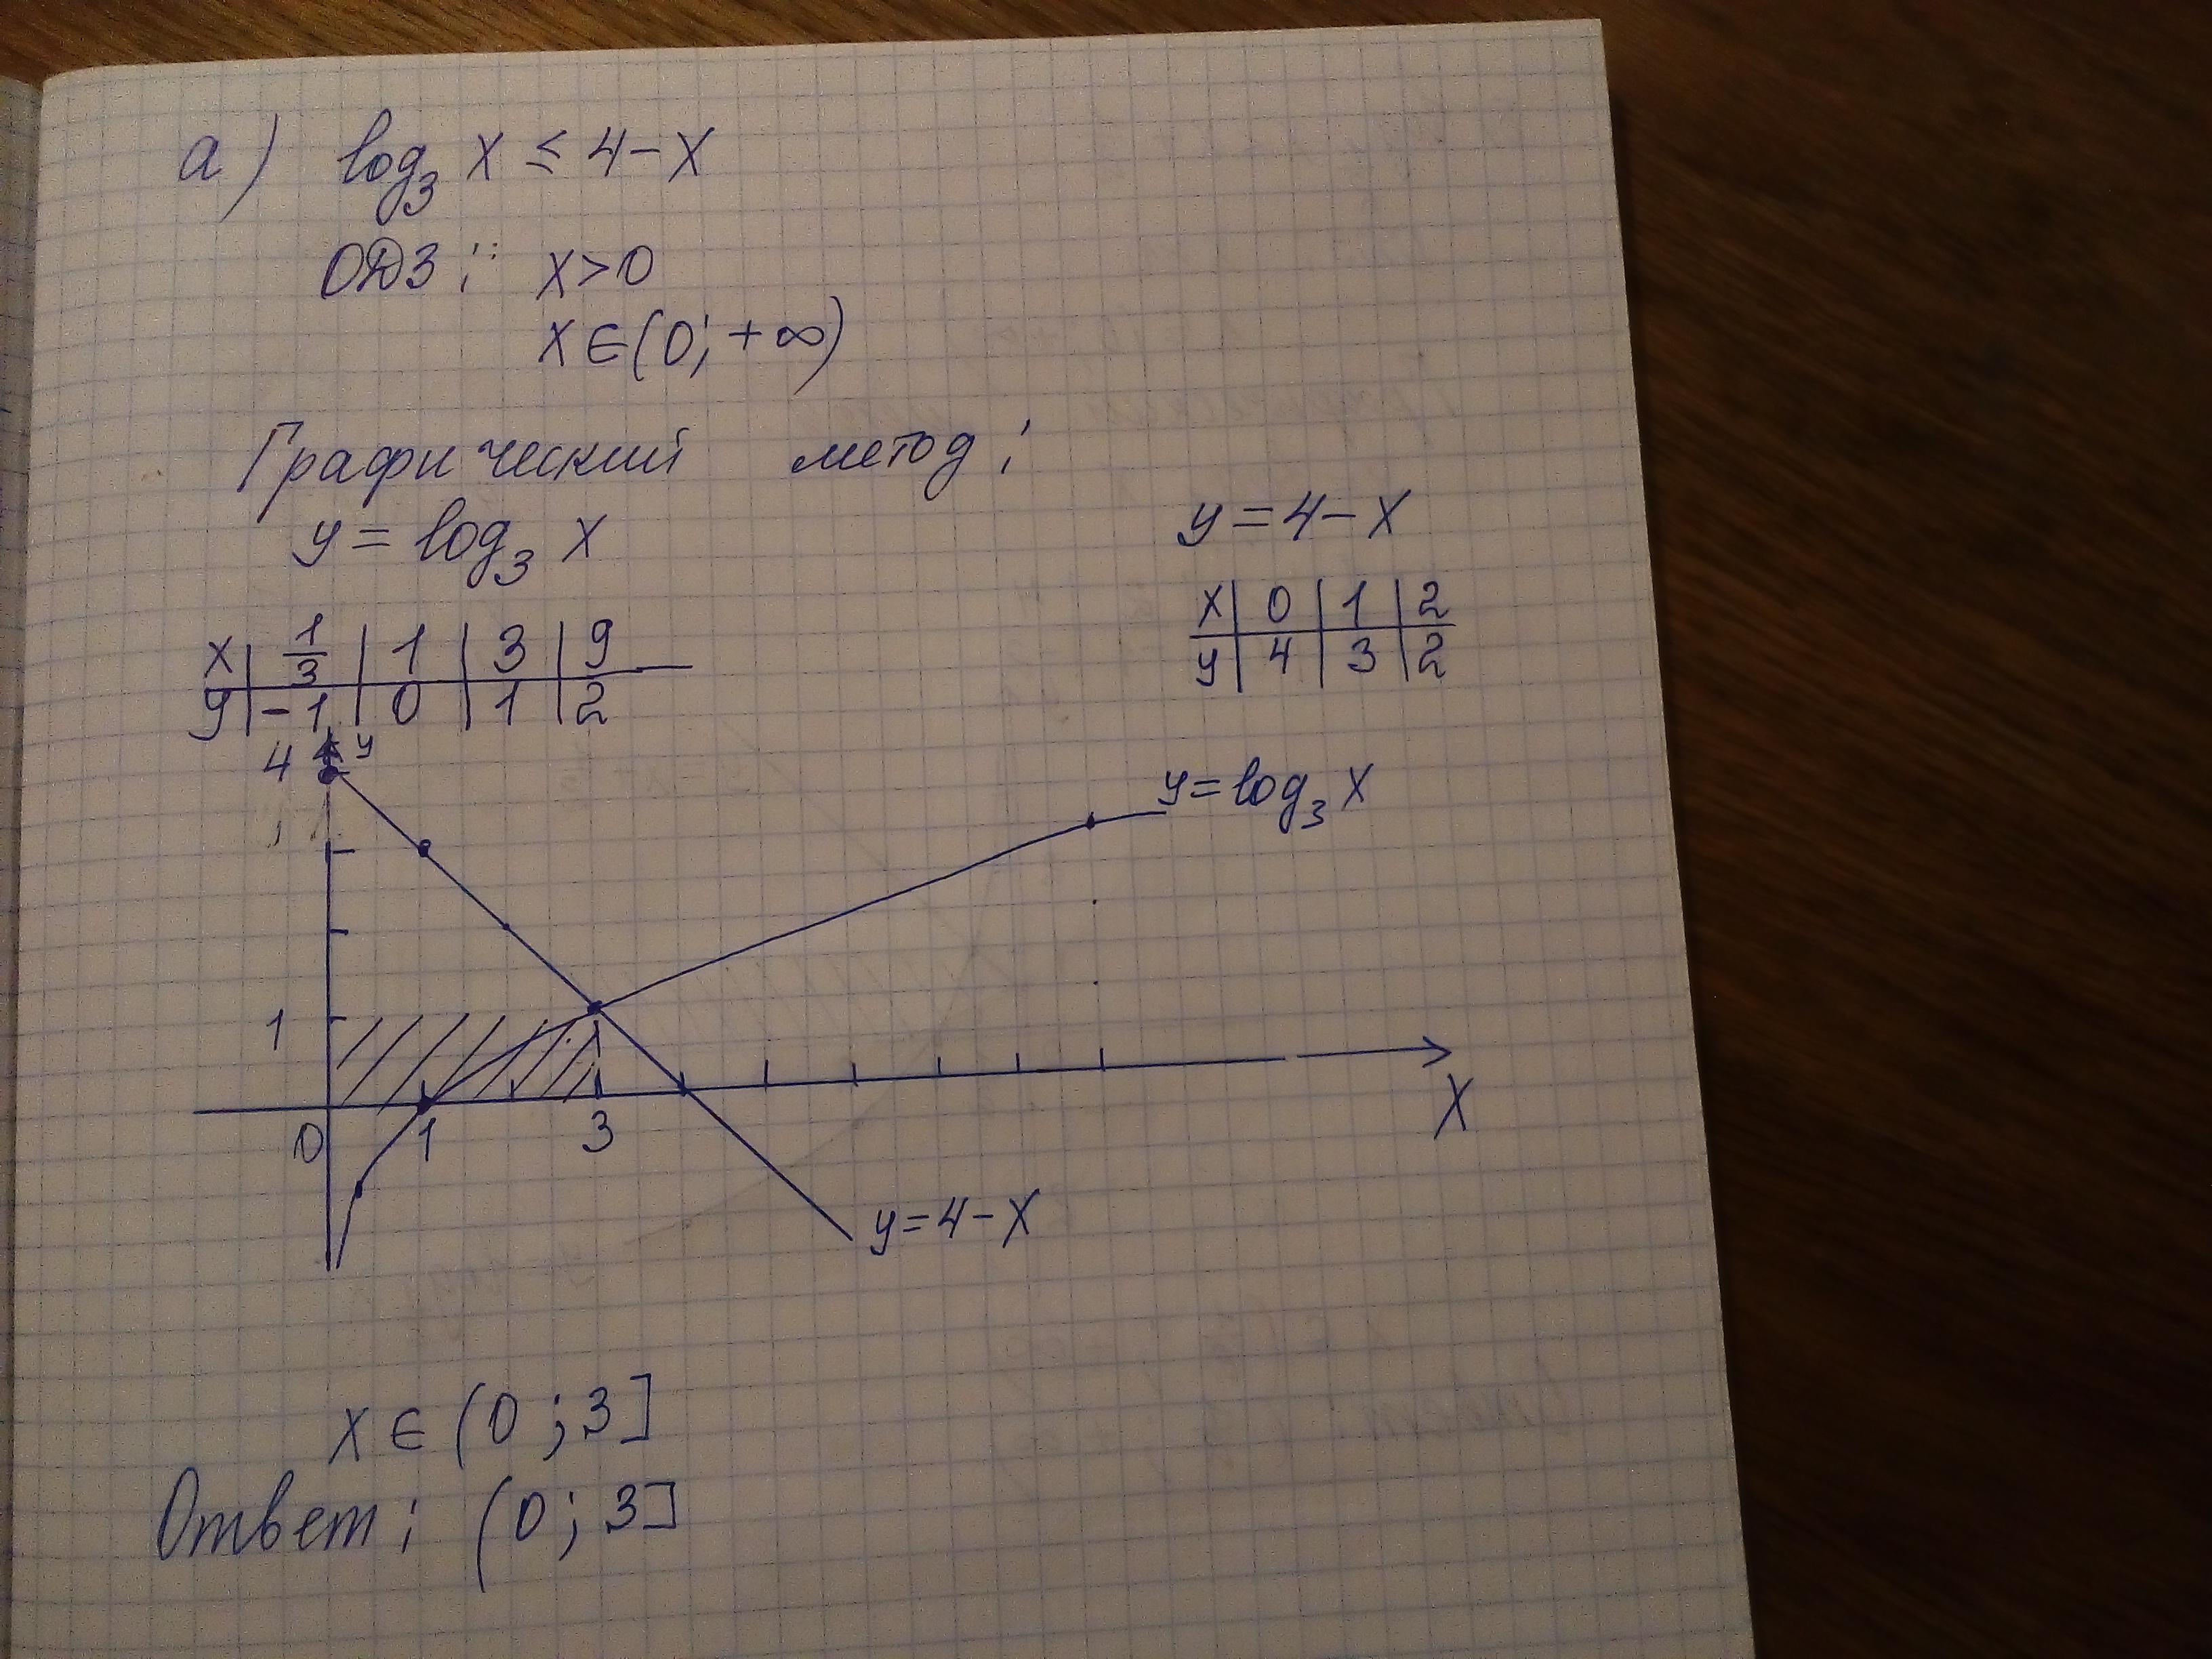 а) log₃ x ≤ 4-x
ОДЗ: x>0
x∈(0;+∞)
Графический метод:
y = log₃ x
y=4-x
x | 1/3 | 1 | 3 | 9
y | -1 | 0 | 1 | 2
x | 0 | 1 | 2
y | 4 | 3 | 2
4 y
y=log₃ x
1
0 1 3 x
y=4-x
x∈(0;3]
Ответ: (0;3]